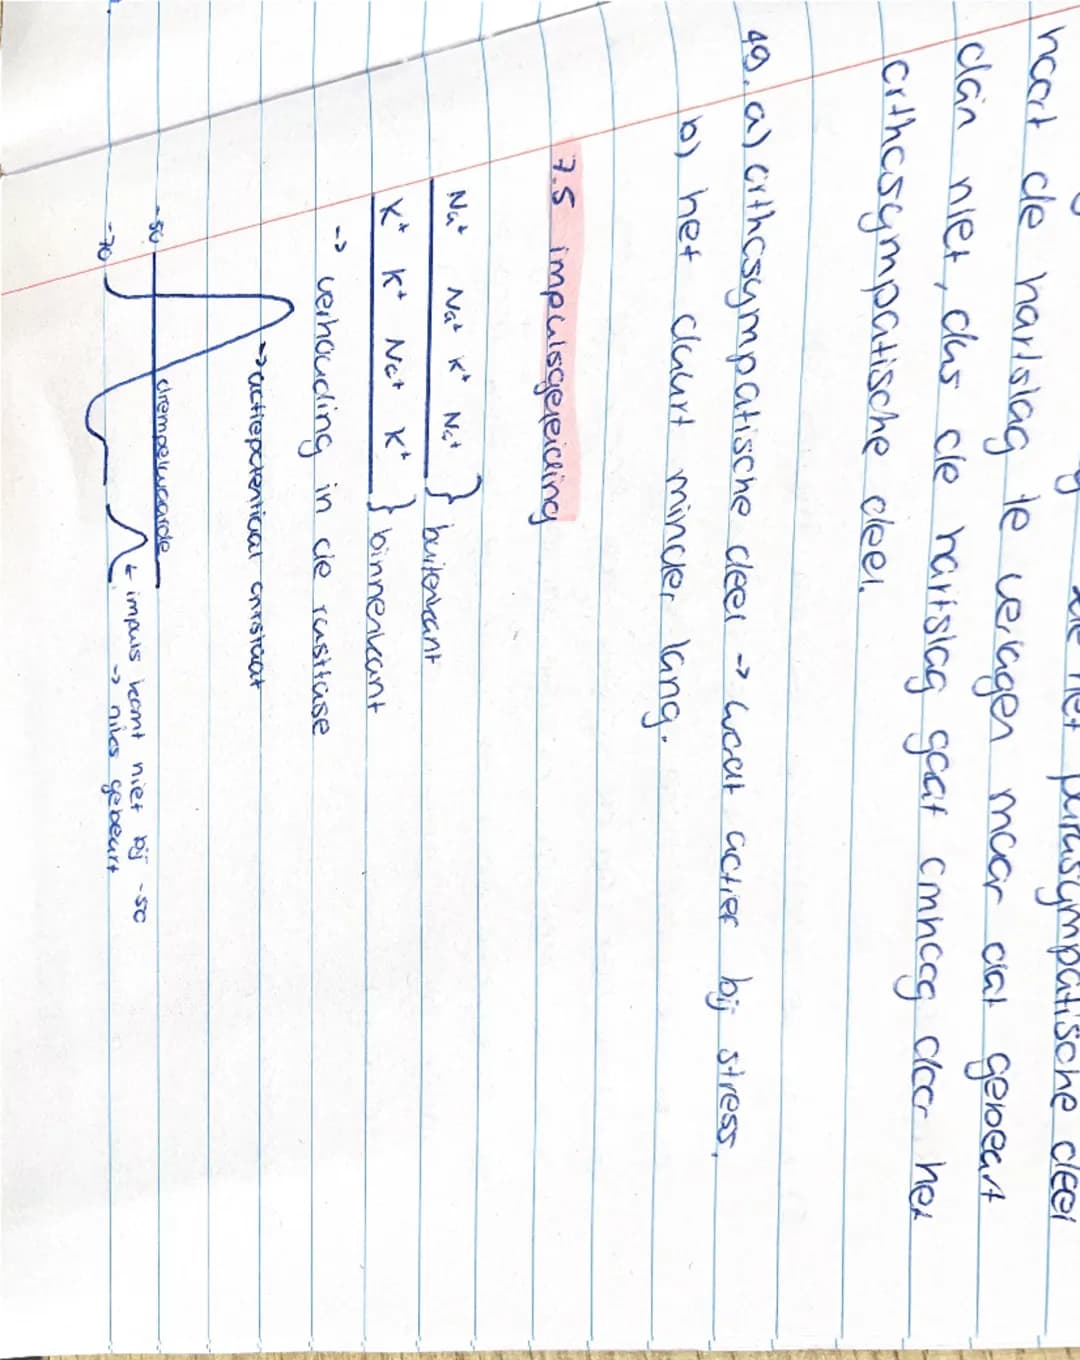 het parasympatische deel
hoort de hartslag te verlagen maar dat gebeurt
dan niet, dus de hartslag gaat omhoog door het
orthosympatische deel.
49. a) orthosympatische deel -> wordt actief bij stress,
b) het duurt minder lang.
7.5 impulsgeleiding
Na+ Na+ K+ Na+ } buitenkant
K+ K+ Na+ K+ } binnenkant
-> verhouding in de rustfase
-> actiepotentiaal ontstaat
-50 drempelwaarde
-70
← impuls komt niet bij -50
-> niks gebeurt